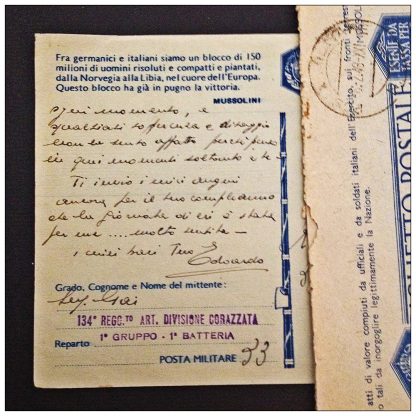 Fra germanici e italiani siamo un blocco di 150
milioni di uomini risoluti e compatti e piantati,
dalla Norvegia alla Libia, nel cuore dell'Europa.
Questo blocco ha già in pugno la vittoria.
MUSSOLINI
ogni momento, e
qualsiasi sofferenza e disagio
non la sento affatto perchè penso
in quei momenti soltanto a te –
Ti invio i miei auguri
ancora per il tuo compleanno
che la giornata di ieri è stata
per me .... molto sentita –
i miei baci Tuo
Edoardo
Grado, Cognome e Nome del mittente:
134° REGG.TO ART. DIVISIONE CORAZZATA
1° GRUPPO - 1ª BATTERIA
Reparto
POSTA MILITARE 53
ETTO POSTALE
ESENTE DA
TASSA PER
sui fronti
e da soldati italiani dell'Esercito,
atti di valore compiuti da ufficiali
o tali da inorgoglire legittimamente la Nazione.